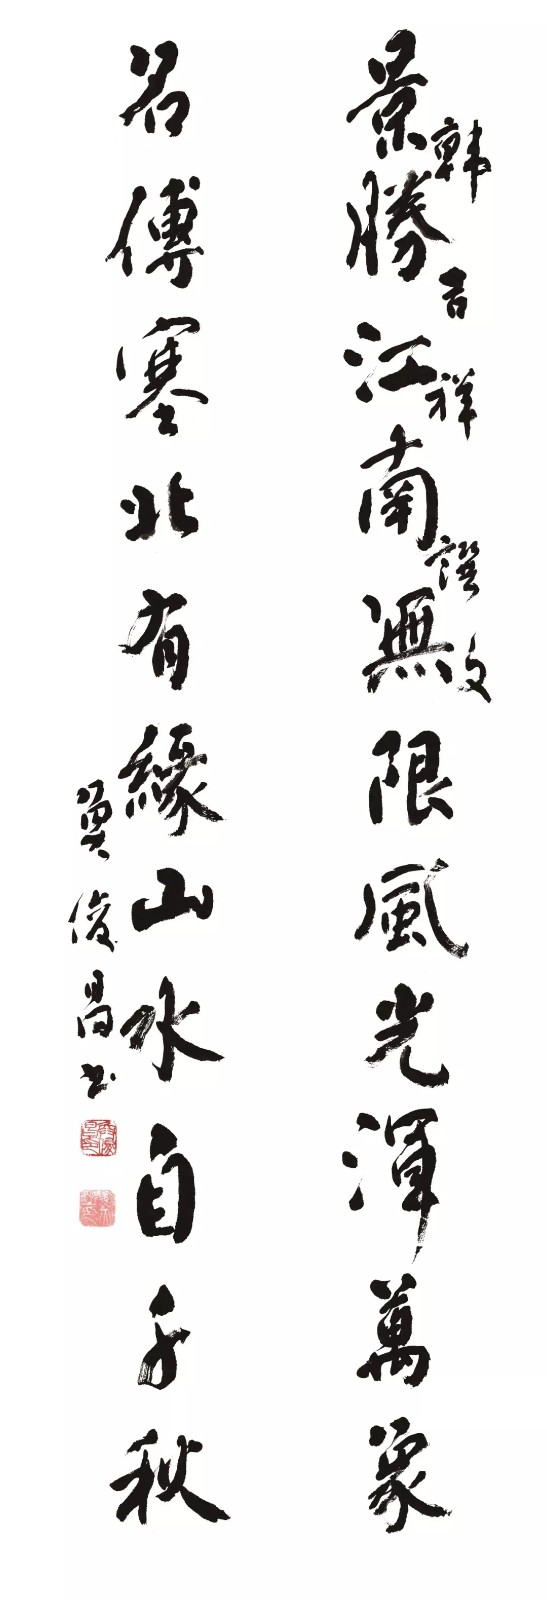 韓吉祥譔文
景勝江南無限風光渾萬象
名傳塞北有緣山水自千秋
莫俊昌书